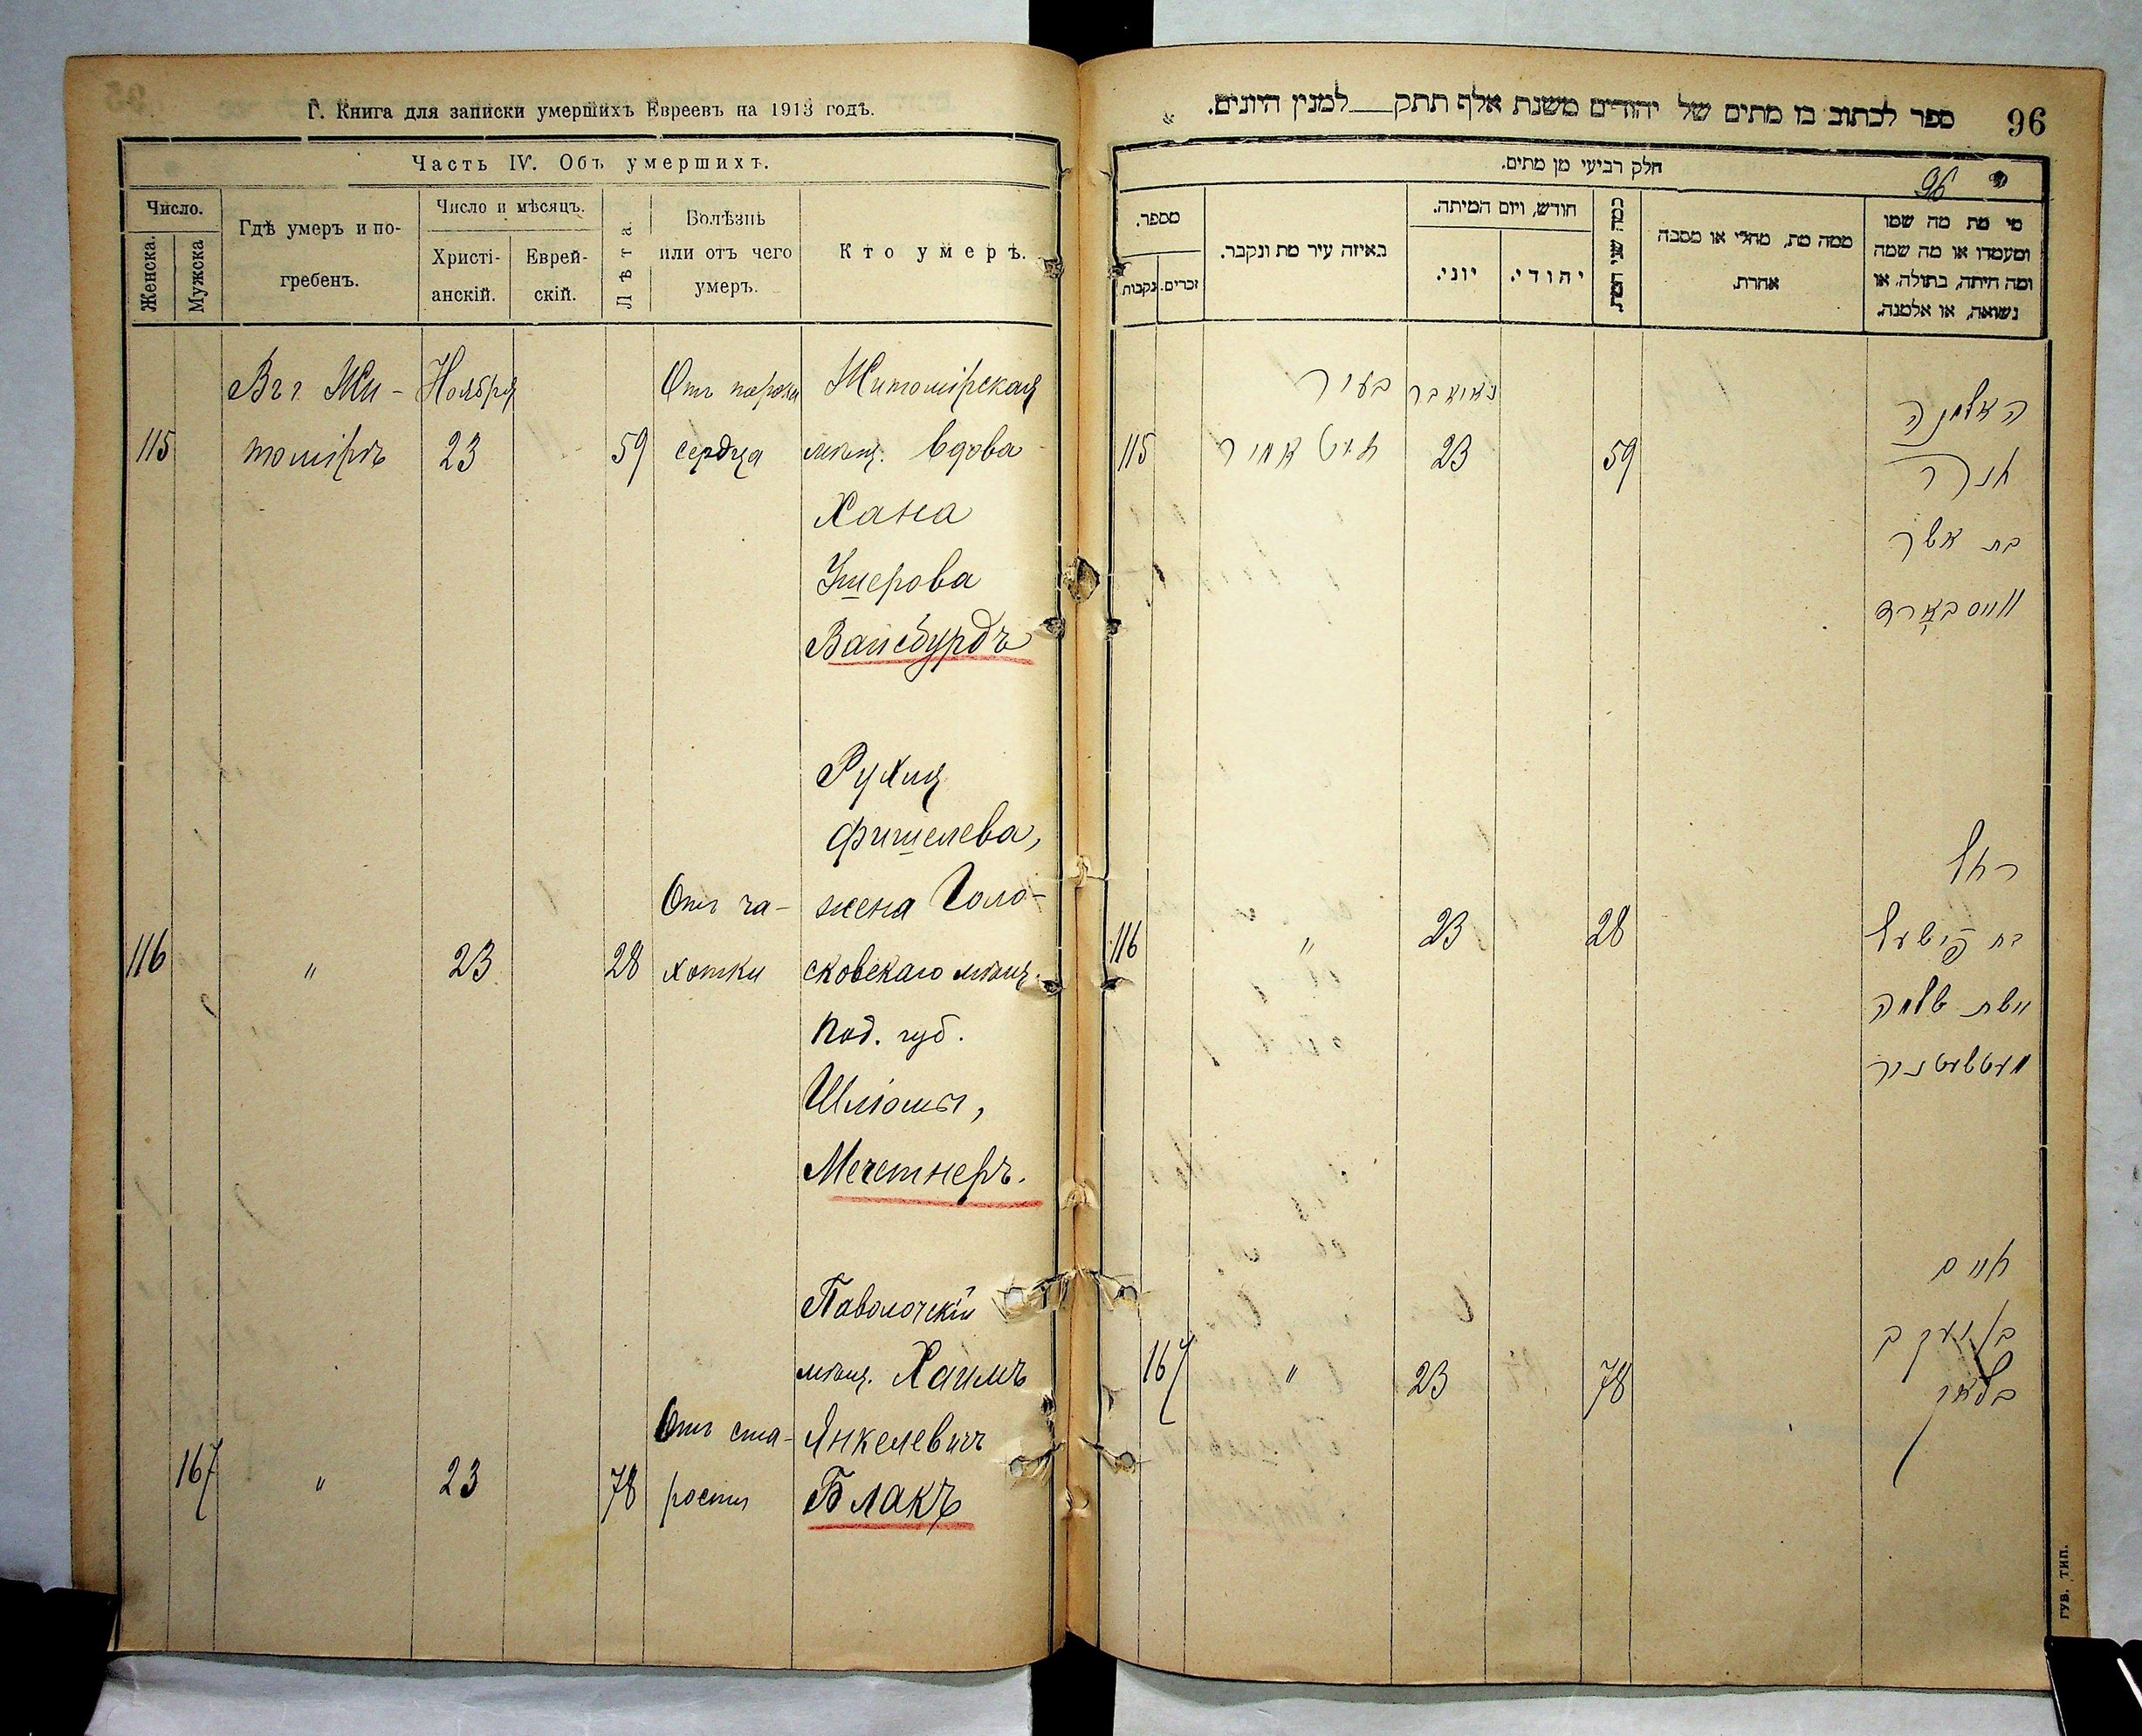 Г. Книга для записки умершихъ Евреевъ на 1913 годъ.
Часть IV. Объ умершихъ.
Число.
Женска.
Мужска
Гдѣ умеръ и по-
гребенъ.
Число и мѣсяцъ.
Христі-
анскій.
Еврей-
скій.
Лѣта
Болѣзнь
или отъ чего
умеръ.
Кто умеръ.
Въ г. Жи-
Ноября
Отъ порока
Житомірская
115
томірѣ
23
59
сердца
мѣщ. вдова
Хана
Ушерова
Вайсбурдъ
Рухля
Фишелева,
Отъ ча-
жена Голо-
116
"
23
28
хотки
сковскаго мѣщ.
Под. губ.
Шлiомы,
Мечетнеръ.
Паволочскій
мѣщ. Хаимъ
Отъ ста-
Янкелевичъ
167
"
23
78
рости
Блакъ
96
ספר לכתוב בו מתים של יהודים משנת אלף תתק למנין היונים.
חלק רביעי מן מתים.
96
מספר.
נקבות
זכרים.
באיזה עיר מת ונקבר.
חודש, ויום המיתה.
יוני.
יהודי.
כמה שני המת
ממה מת, מחלי או מסבה
אחרת.
מי מת מה שמו
ומעמדו או מה שמה
ומה היתה, בתולה, או
נשואה, או אלמנה.
האלמנה
בעיר
נאיאבר
115
זיטאמיר
23
59
חנה
בת אשר
ווייסבארד
רחל
116
"
23
28
בת פישעל
אשת שלמה
מעטשעטנער
חיים
בן יעקב
167
"
23
78
בלאק
ГУБ. ТИП.